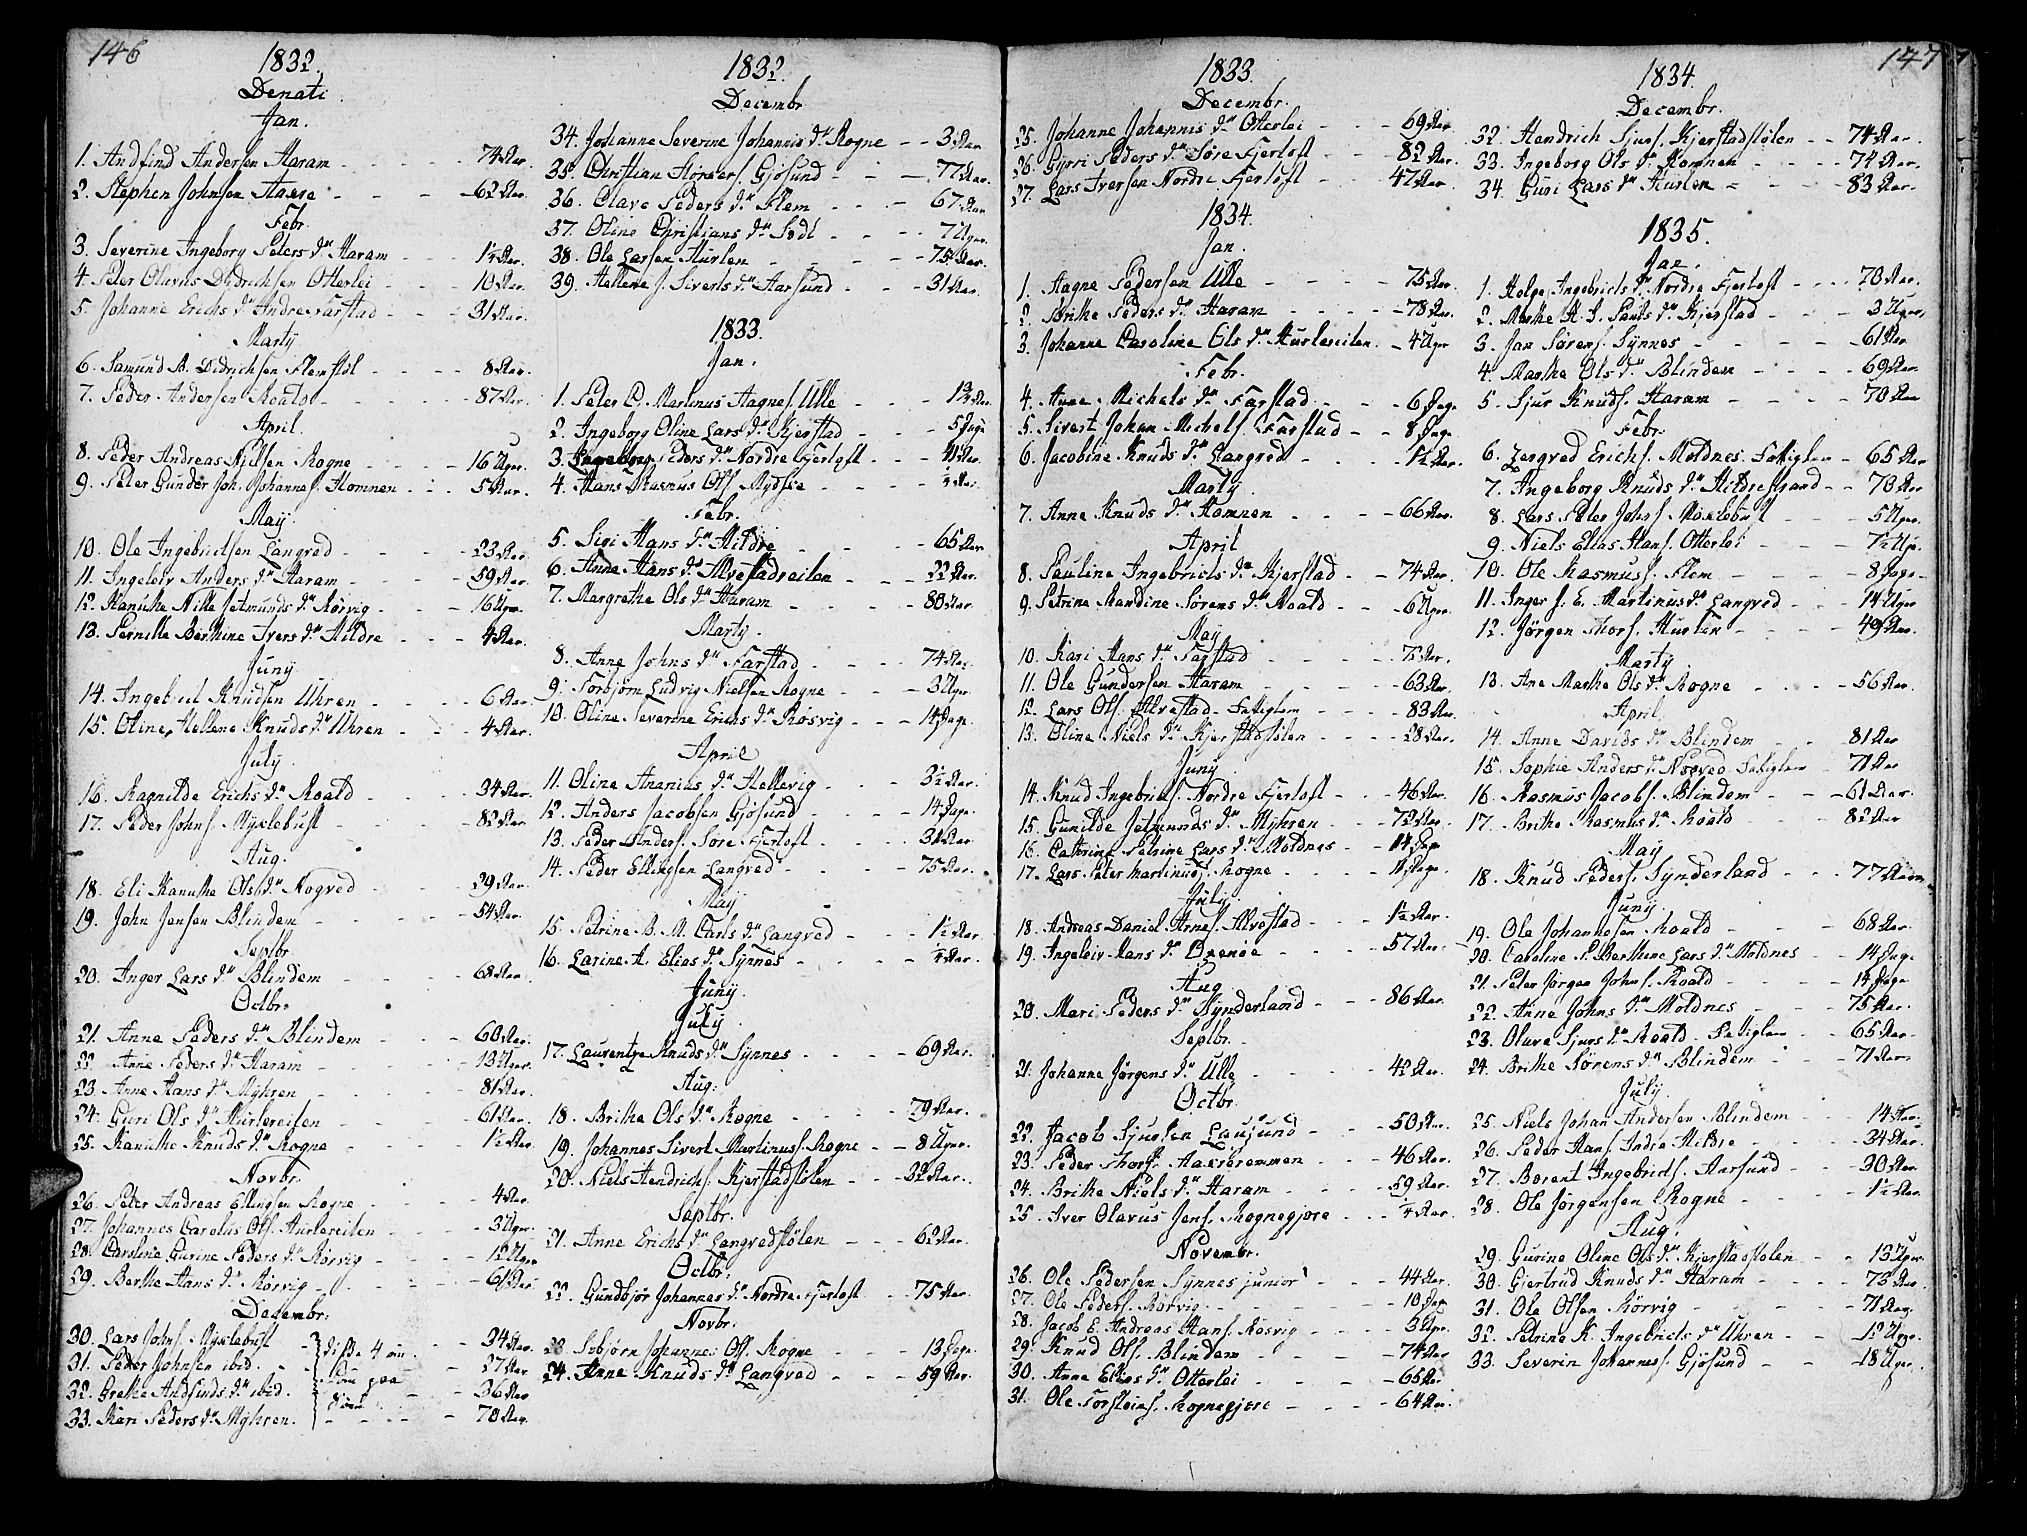 146
1832.
Denati
Jan.
1. Andfind Andersen Haram - - - 74 Aar.
2. Stephen Johnsen Haxre - - - 62 Aar.
Febr.
3. Severine Ingeborg Peters dr. Haram - - 1/4 Aar.
4. Peter Olavus Didrichsen Otterlei - - - 10 Aar.
5. Johanne Erichs dr. Indre Farstad - - 31 Aar.
Marty
6. Samund A. Didrichsen Flemstøl - - - 8 Aar.
7. Peder Andersen Roald - - - 87 Aar.
April.
8. Peder Andreas Nielsen Rogne - - - 16 Uger.
9. Peter Gunder Joh. Johannes. Homnen - - 5 Aar.
May.
10. Ole Ingebrictsen Langved - - - 23 Aar.
11. Ingeleiv Anders dr. Haram - - - 59 Aar.
12. Kanutte Nille Jetmunds dr. Rørvig - - 16 Uger
13. Pernille Berthine Ivers dr. Hildre - - 4 Aar.
Juny
14. Ingebrict Knudsen Uhren - - - 6 Aar.
15. Oline Hellene Knuds dr. Uhren - - 4 Aar.
July
16. Ragnilde Erichs dr. Roald - - - 34 Aar.
17. Peder Johns. Myxlebust - - - 82 Aar.
Aug.
18. Eli Kanutte Ols dr. Nogved - - - 29 Aar.
19. John Jensen Blindem - - - 54 Aar.
Septbr.
20. Inger Lars dr. Blindem - - - 68 Aar.
Octbr.
21. Anne Peders dr. Blindem - - - 60 Aar.
22. Anne Peders dr. Haram - - - 13 Uger.
23. Anne Hans dr. Myhren - - - 81 Aar.
24. Guri Ols dr. Hurlereiten - - - 61 Aar.
25. Kanutte Knuds dr. Rogne - - - 1 1/2 Aar.
Novbr.
26. Peter Andreas Ellingsen Rogne - - - 4 Aar.
27. Johannes Carolus Ols. Hurlereiten - - 3 Uger.
28. Caroline Gurine Peders dr. Rørvig - - 12 Uger
29. Berthe Hans dr. Rørvig - - - 61 Aar.
Decembr.
30. Lars Johns. Myxlebust - - 24 Aar.
31. Peder Johnsen ibid. - - 27 Aar
32. Grethe Andfinds dr. ibid. - - 36 Aar
33. Kari Peders dr. Myhren. - - - 70 Aar.
disse 4 om-
kom paa
Søen
1832.
Decembr
34. Johanne Severine Johannis dr. Rogne - - 3 Aar
35. Christian Størkers. Gjøsund - - - 77 Aar.
36. Olave Peders dr. Flem - - - 67 Aar
37. Oline Christians dr. - - - 7 Uger.
38. Ole Larsen Hurlen - - - 75 Aar.
39. Hellene J. Siverts dr. Aarsund - - - 31 Aar.
1833.
Jan.
1. Peter C. Martinus Hagnes. Ulle - - - 1 3/4 Aar.
2. Ingeborg Oline Lars dr. Kjerstad - - - 5 Dage
3. Ingeborg Peders dr. Nordre Fjertoft - - - Aar.
4. Hans Rasmus Ols. - - - 1/4 Aar.
Febr.
5. Siri Hans dr. Hildre - - - 65 Aar
6. Anne Hans dr. Alvestadreiten - - - 22 Aar.
7. Margrethe Ols dr. Haram - - - 80 Aar
Marty.
8. Anne Johns dr. Farstad - - - 74 Aar.
9. Torbjørn Ludvig Nielsen Rogne - - - 3 Uger
10. Oline Severine Erichs dr. Røsvig - - - 14 Dage
April
11. Oline Ananias dr. Hellevig - - 3 1/2 Aar.
12. Anders Jacobsen Gjøsund - - - 14 Dage.
13. Peder Anders. Søre Fjertoft - - - 31 Aar.
14. Peder Ellingsen Langved - - - 75 Aar.
May
15. Petrine B. M. Carls dr. Langved - - - 1 1/2 Aar.
16. Larine A. Elias dr. Synnes - - - 1/4 Aar.
Juny.
July.
17. Laurentze Knuds dr. Synnes - - - 69 Aar.
Aug.
18. Brithe Ols dr. Rogne - - - 79 Aar.
19. Johannes Sivert Martinus. Rogne - - 8 Uger.
20. Niels Hendrichs. Kjerstadstølen - - - 32 Aar.
Septbr.
21. Anne Erichs dr. Langvedstølen - - - 62 Aar.
Octbr.
22. Gundbjør Johannes dr. Nordre Fjertoft - - 75 Aar.
Novbr.
23. Torbjørn Johannes Ols. Rogne - - - 13 Dage.
24. Anne Knuds dr. Langved - - - 59 Aar.
147
1833.
Decembr.
25. Johanne Johannis dr. Otterlei - - - 69 Aar
26. Gyrri Peders dr. Søre Fjertoft - - - 82 Aar.
27. Lars Iversen Nordre Fjertoft - - - 47 Aar.
1834.
Jan.
1. Hagne Pedersen Ulle - - - 75 Aar.
2. Brithe Peders dr. Haram - - - 78 Aar.
3. Johanne Caroline Ols dr. Hurlereiten. - 4 Uger
Febr.
4. Anne Michels dr. Farstad - - - 6 Dage
5. Sivert Johan Michels. Farstad - - 8 Dage.
6. Jacobine Knuds dr. Langved - - - 1 1/2 Aar.
Marty.
7. Anne Knuds dr. Homnen - - - 66 Aar.
April
8. Pauline Ingebricts dr. Kjerstad - - 74 Aar.
9. Petrine Randine Sørens dr. Roald - - 6 Uger.
May
10. Kari Hans dr. Farstad - - - Aar.
11. Ole Gundersen Haram - - - 63 Aar.
12. Lars Ols. Alvestad Fattiglem - - - 83 Aar.
13. Oline Niels dr. Kjerstadstølen - - - 28 Aar.
Juny
14. Knud Ingebricts. Nordre Fjertoft - - - 46 Aar.
15. Gunilde Jetmunds dr. Myhren - - - 72 Aar.
16. Cathrine Petrine Lars dr. Moldnes - - 14 Dage
17. Lars Peter Martinus. Rogne - - - Dage.
July.
18. Andreas Daniel Arnes. Alvestad - - - 1 1/2 Aar.
19. Ingeleiv Hans dr. Oxenøe - - - 57 Aar.
Aug.
20. Mari Peders dr. Synderland - - - 86 Aar.
Septbr.
21. Johanne Jørgens dr. Ulle - - - 42 Aar.
Octbr.
22. Jacob Sjursen Lausund - - - 50 Aar.
23. Peder Thors. Haxrøremmen - - - 46 Aar.
24. Brithe Niels dr. Haram - - - 59 Aar.
25. Iver Olavus Jens. Rognegjøre - - - 1/4 Aar.
Novembr.
26. Ole Pedersen Synnes junior - - - 44 Aar.
27. Ole Peders. Rørvig - - - 10 Dage
28. Jacob E. Andreas Hans. Røsvig - - 3 Uger.
29. Knud Ols. Blindem - - - 74 Aar
30. Anne Elias dr. Otterlei - - - 65 Aar
31. Ole Torsteins. Rognegjøre - - - 64 Aar.
1834.
Decembr.
32. Hendrich Sjurs. Kjerstadstølen - - 74 Aar.
33. Ingeborg Ols dr. Homnen - - - 74 Aar.
34. Guri Lars dr. Hurlen - - - 83 Aar.
1835.
Jan.
1. Helge Ingebricts dr. Nordre Fjertoft - - - 70 Aar.
2. Marthe H. J. Pauls dr. Kjerstad - - - 3 Uger,
3. Jan Sørens. Synnes - - - 61 Aar
4. Marthe Ols dr. Blindem - - - 69 Aar
5. Sjur Knuds. Haram - - - 70 Aar
Febr.
6. Erichs. Moldnes. Fattiglem - 65 Aar
7. Ingeborg Knuds dr. Hildrestrand - - 70 Aar
8. Lars Peter Johns. Myxlebust - - 5 Uger.
9. Niels Elias Hans. Otterlei - - - 7 1/2 Uge.
10. Ole Rasmus. Flem - - - 8 Dage
11. Inger J. E. Martinus dr. Langved - - - 14 Uger
12. Jørgen Thors. Hurlen - - - 49 Aar.
Marty
13. Ane Marthe Ols dr. Rogne - - - 56 Aar.
April.
14. Anne Davids dr. Blindem - - 81 Aar
15. Sophie Anders dr. Nogved Fattiglem - 71 Aar
16. Rasmus Jacobs. Blindem - - - 61 Aar.
17. Brithe Rasmus dr. Roald - - - 82 Aar
May
18. Knud Peders. Synderland - - - 77 Aar
Juny.
19. Ole Johannesen Roald - - - 68 Aar.
20. Caroline P. Berthine Lars dr. Moldnes - - 14 Dage
21. Peter Jørgen Johns. Roald - - - 14 Dage
22. Anne Johns dr. Moldnes - - - 75 Aar.
23. Olave Sjurs dr. Roald Fattiglem - - 65 Aar.
24. Brithe Sørens dr. Blindem - - 71 Aar.
July.
25. Niels Johan Andersen Blindem - - 14 Aar.
26. Peder Hans. Indre Hildre - - - 34 Aar.
27. Berent Ingebricts. Aarsund - - - 30 Aar.
28. Ole Jørgensen Rogne - - - 1 1/2 Aar.
Aug.
29. Gurine Oline Ols dr. Kjerstadstølen - - 13 Uger
30. Gjertrud Knuds dr. Haram - - - 73 Aar.
31. Ole Olsen Rørvig - - - 71 Aar.
32. Petrine K. Ingebricts dr. Uhren - - 12 Uger.
33. Severin Johannes. Gjøsund - - - 18 Uger.